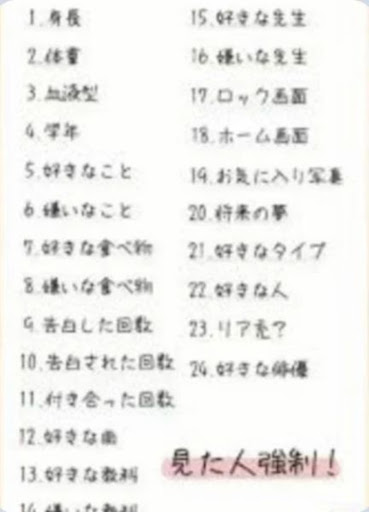 1.身長
2.体重
3.血液型
4.学年
5.好きなこと
6.嫌いなこと
7.好きな食べ物
8.嫌いな食べ物
9.告白した回数
10.告白された回数
11.付き合った回数
12.好きな曲
13.好きな教科
14.嫌いな教科
15.好きな先生
16.嫌いな先生
17.ロック画面
18.ホーム画面
19.お気に入り写真
20.将来の夢
21.好きなタイプ
22.好きな人
23.リア充?
24.好きな俳優
見た人強制!